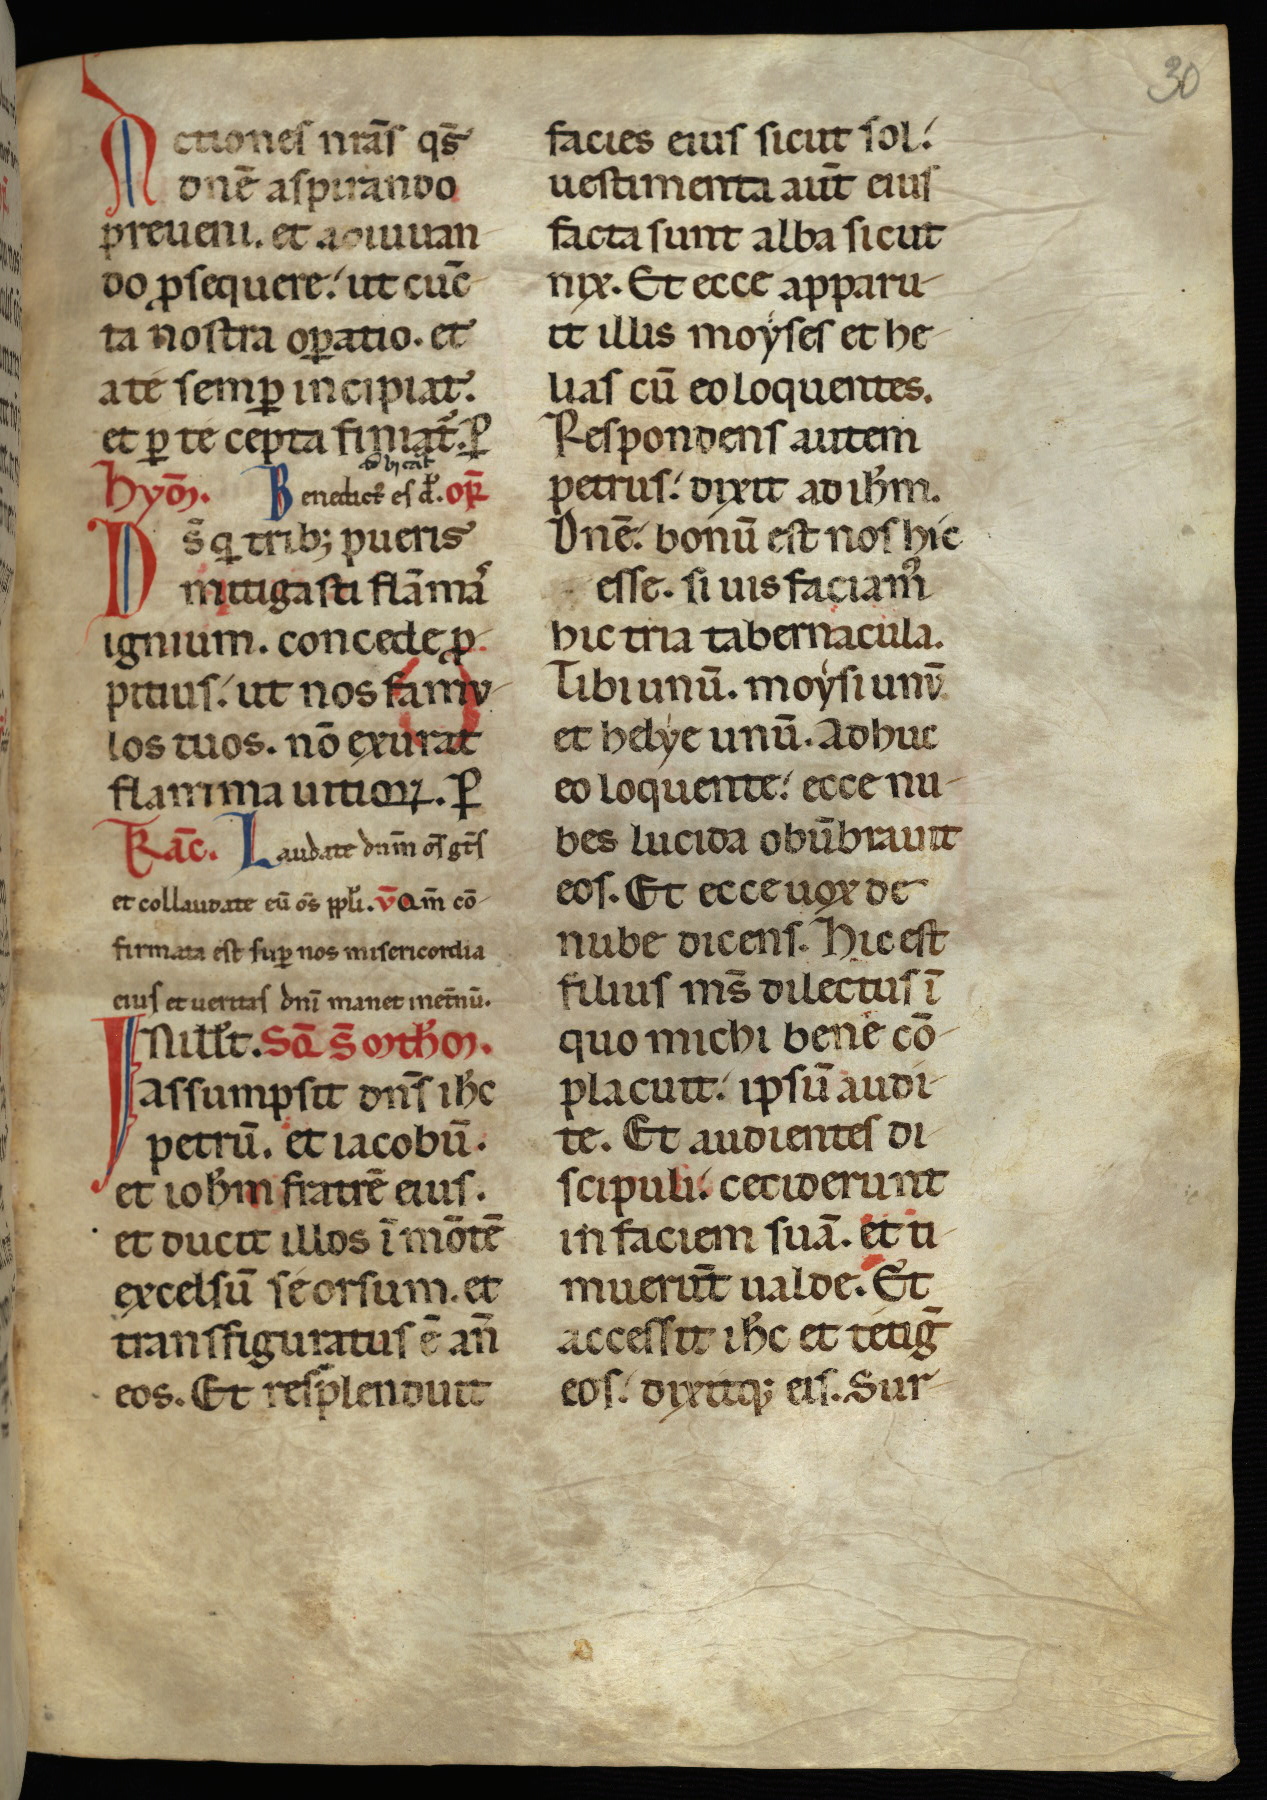 30
Actiones nr̄as q̄s
dn̄e aspirando
preueni. et adiuuan
do ꝓsequere. ut cūc
ta nostra oꝑatio. et
a te semꝑ incipiat.
et ꝑ te cepta finiat̄. ꝑ
hyōn. Benedict᷒ es d̄. or̄
Ds̄ qui trib; pueris
mitigasti flāmas
ignium. concede ꝓ
pitius. ut nos famu
los tuos. nō exurat
flamma uitioꝝ. ꝑ
Trāc. Laudate dn̄m om̄s gēt̄s
et collaudate eū om̄s ppl̄i. v̄ Qm̄ cō
firmata est suꝑ nos misericordia
eius et ueritas dn̄i manet inet̄nū.
IN ill̄ t̄. Sc̄d̄ S̄ Mth̄m.
assumpsit dn̄s ih̄c
petrū. et iacobū.
et ioh̄m fratrē eius.
et ducit illos ī mōtē
excelsū seorsum. et
transfiguratus ē an̄
eos. Et resplenduit
facies eius sicut sol.
uestimenta aut̄ eius
facta sunt alba sicut
nix. Et ecce apparu
it illis moyses et he
lias cū eo loquentes.
Respondens autem
petrus. dixit ad ih̄m.
Dn̄e. bonū est nos hic
esse. si uis faciam᷒
hic tria tabernacula.
Tibi unū. moysi unū
et helye unū. Adhuc
eo loquente. ecce nu
bes lucida obūbrauit
eos. Et ecce uox de
nube dicens. Hic est
filius ms̄ dilectus ī
quo michi bene cō
placuit. ipsū audi
te. Et audientes di
scipuli. ceciderunt
in faciem suā. et ti
muerut̄ ualde. Et
accessit ih̄c et tetiḡ
eos. dixitq; eis. Sur